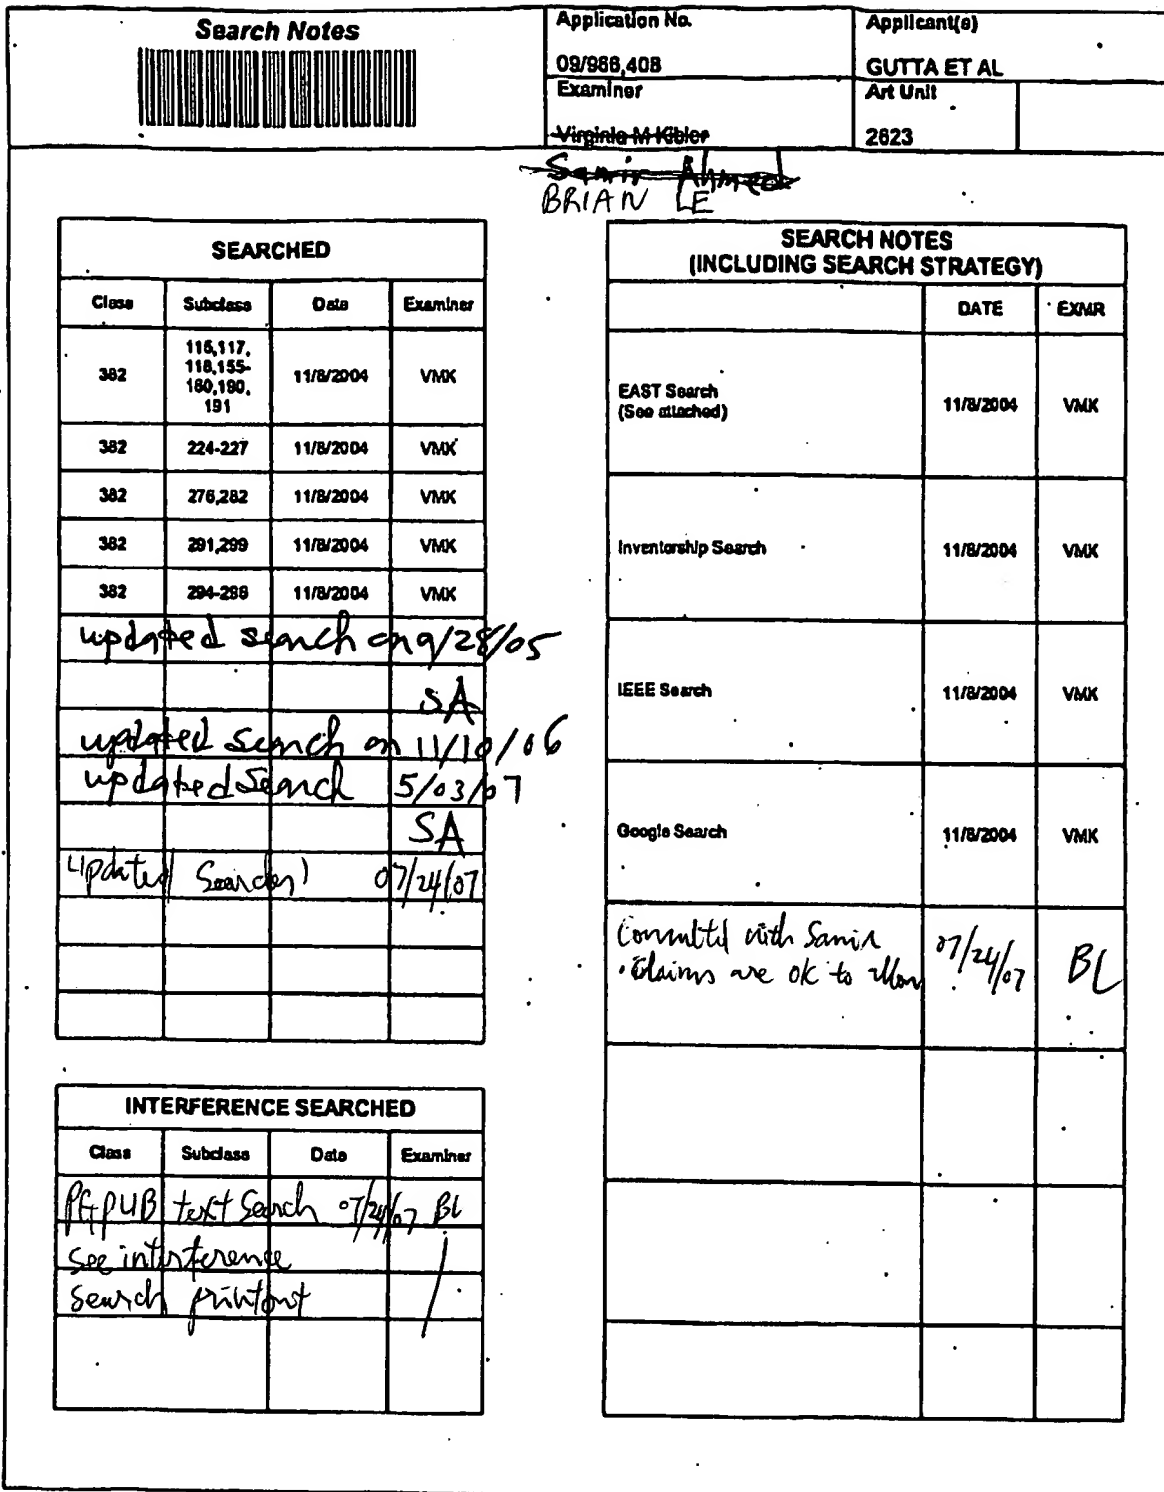 Search Notes
Application No.
09/966,408
Applicant(s)
GUTTA ET AL
Examiner
Virginia M Kibler
Art Unit
2623
Samir Ahmed
BRIAN LE
SEARCHED
Class Subclass Date Examiner
382 115,117, 118,155- 160,190, 191 11/8/2004 VMK
382 224-227 11/8/2004 VMK
382 276,282 11/8/2004 VMK
382 291,299 11/8/2004 VMK
382 294-298 11/8/2004 VMK
updated search on 9/28/05
SA
updated search on 11/10/06
updated search 5/03/07
SA
updated Search 07/24/07
INTERFERENCE SEARCHED
Class Subclass Date Examiner
PGPUB text Search 07/24/07 BL
see interference
search printout
SEARCH NOTES
(INCLUDING SEARCH STRATEGY)
DATE EXMR
EAST Search
(See attached) 11/8/2004 VMK
Inventorship Search 11/8/2004 VMK
IEEE Search 11/8/2004 VMK
Google Search 11/8/2004 VMK
Consulted with Samir
Claims are ok to allow 07/24/07 BL